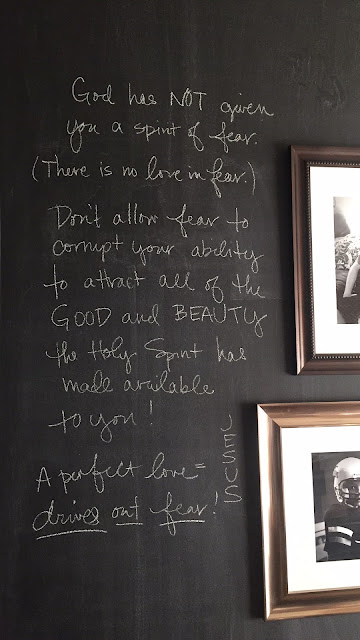 God has NOT given
you a spirit of fear.
(There is no love in fear.)
Don't allow fear to
corrupt your ability
to attract all of the
GOOD and BEAUTY
the Holy Spirit has
made available
to you!
A perfect love =
drives out fear!
JESUS